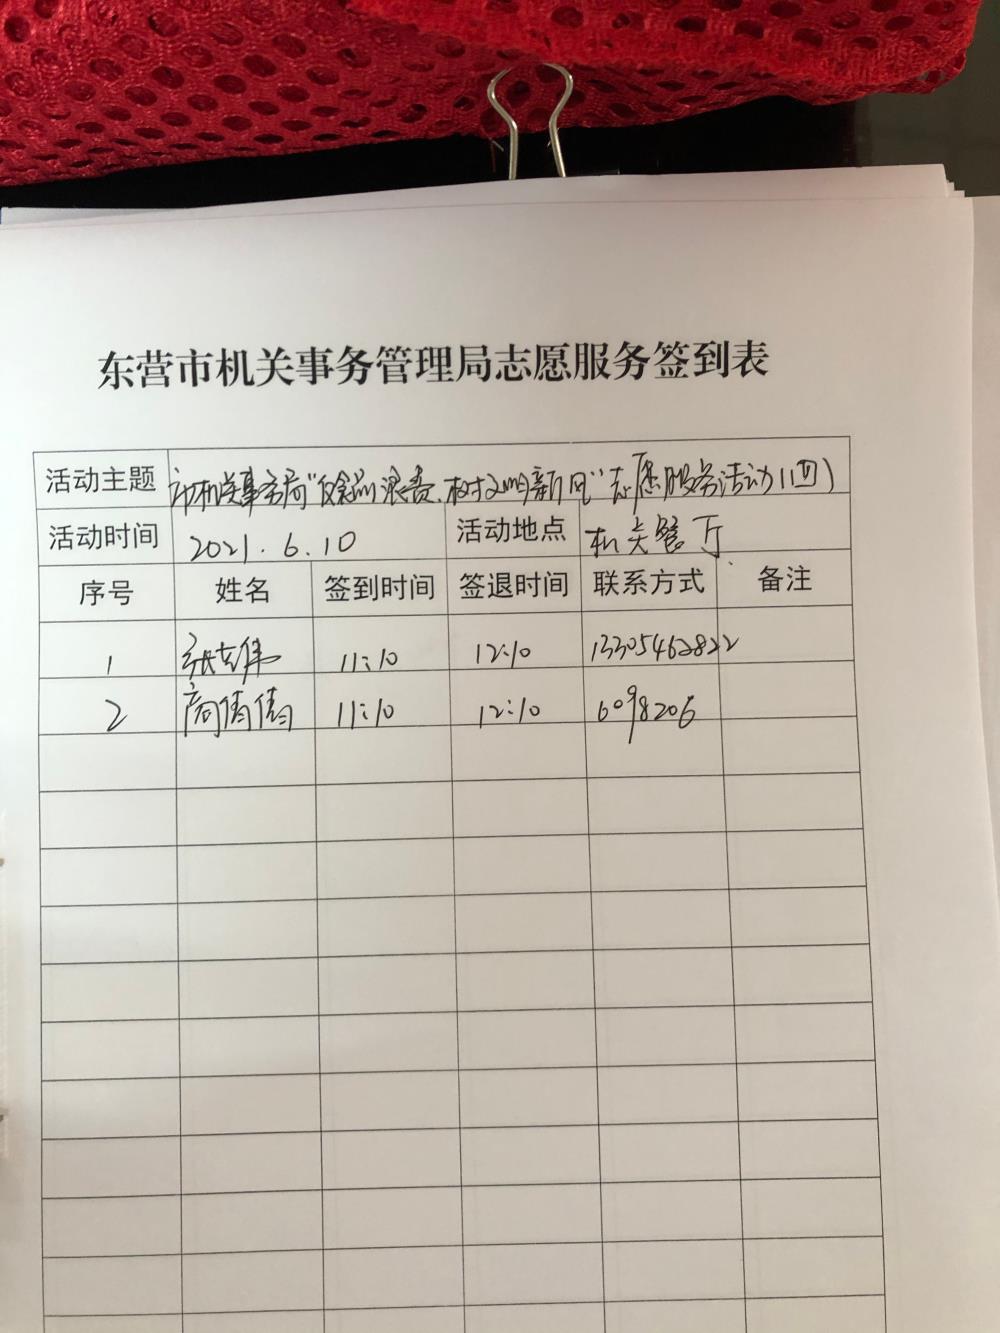 东营市机关事务管理局志愿服务签到表
活动主题 市机关事务局“除陋 浪费、树文明新风”志愿服务活动(四)
活动时间 2021.6.10 活动地点 机关餐厅
序号 姓名 签到时间 签退时间 联系方式 备注
1 张志伟 11:10 12:10 13305462822
2 商倩倩 11:10 12:10 6098206